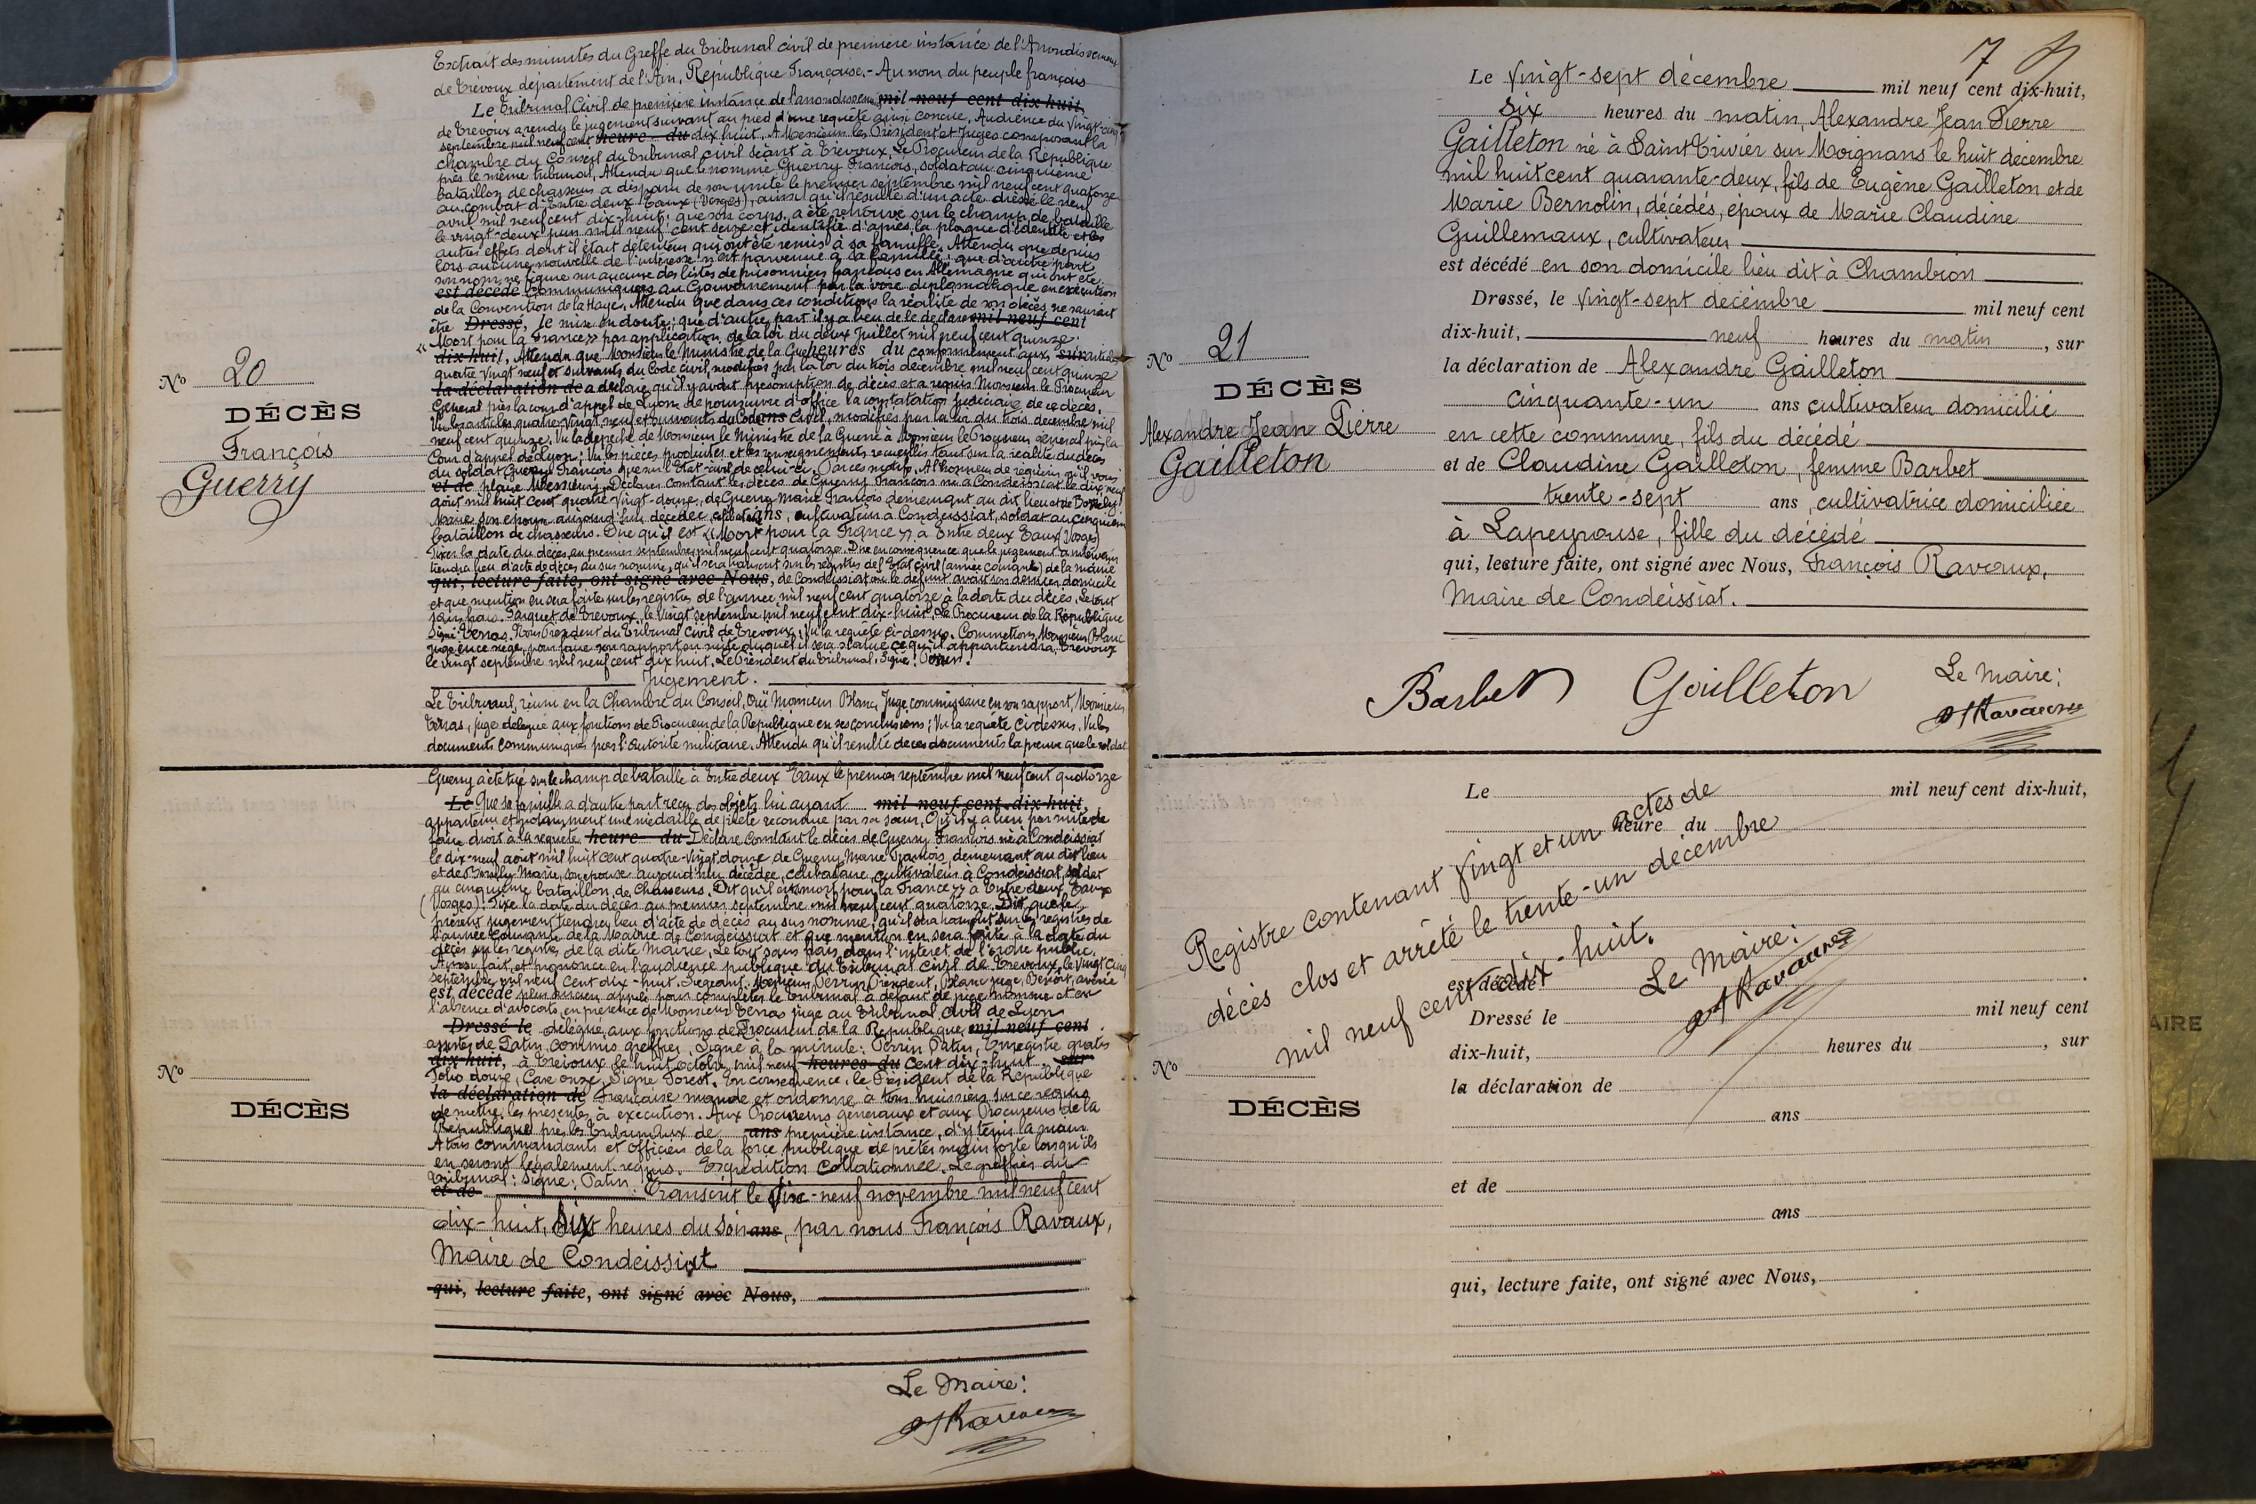 Extrait des minutes du Greffe du Tribunal civil de première instance de l'Arrondissement
de Trévoux département de l'Ain. République Française. - Au nom du peuple français
Le Tribunal Civil de première instance de l'arrondissement mil neuf cent dix-huit,
de Trévoux a rendu le jugement suivant au pied d'une requête ainsi conçue, Audience du vingt-cinq
septembre mil neuf cent heure du dix huit. A Messieurs les Président et Juges composant la
chambre du Conseil du Tribunal civil séant à Trévoux, Le Procureur de la République
près le même tribunal, Attendu que le nommé Guerry François, soldat au cinquième
bataillon de chasseurs a disparu de son unité le premier septembre mil neuf cent quatorze
au combat d'Entre deux Eaux (Vosges), ainsi qu'il résulte d'un acte dressé le neuf
avril mil neuf cent dix-huit; que son corps, a été retrouvé sur le champ de bataille
le vingt-deux juin mil neuf cent seize et identifié d'après la plaque d'identité et les
autres effets dont il était détenteur qui ont été remis à sa famille. Attendu que depuis
lors aucune nouvelle de l'intéressé n'est parvenue à sa famille; que d'autre part
son nom ne figure sur aucune des listes de prisonniers français en Allemagne qui ont été
est décédé communiquées au Gouvernement par la voie diplomatique en exécution
de la Convention de la Haye. Attendu que dans ces conditions la réalité de son décès ne saurait
être Dressé, le mise en doute; que d'autre part il y a lieu de le déclarer mil neuf cent
« Mort pour la France » par application de la loi du deux Juillet mil neuf cent quinze.
dix-huit, Attendu que Monsieur le Ministre de la Guerre heures du conformément aux sur articles
quatre vingt neuf et suivants du Code civil, modifiés par la loi du trois décembre mil neuf cent quinze
la déclaration de a déclaré qu'il y avait présomption de décès et a requis Monsieur le Procureur
Général près la cour d'appel de Lyon de poursuivre d'office la constatation judiciaire de ce décès.
Vu les articles quatre vingt neuf et suivants du Code ans civil, modifiés par la loi du trois décembre mil
neuf cent quinze. Vu la dépêche de Monsieur le Ministre de la Guerre à Monsieur le Procureur général près la
Cour d'appel de Lyon; Vu les pièces produites et les renseignements recueillis tant sur la réalité du décès
du soldat Guerry François que sur l'Etat-civil de celui-ci. Par ces motifs, A l'honneur de requérir qu'il vous
et de plaise Messieurs, Déclarer constant le décès de Guerry François né à Condeissiat le dix neuf
août mil huit cent quatre vingt-douze, de Guerry Marie François demeurant au dit lieu et de
Marie son épouse aujourd'hui décédée, célibataire ans, cultivateur à Condeissiat, soldat au cinquième
bataillon de chasseurs. Dire qu'il est « Mort pour la France » à Entre deux Eaux (Vosges)
Fixer la date du décès au premier septembre mil neuf cent quatorze. Dire en conséquence que le jugement à intervenir
tiendra lieu d'acte de décès au sus nommé, qu'il sera transcrit sur les registres de l'Etat civil (année courante) de la mairie
qui, lecture faite, ont signé avec Nous, de Condeissiat où le défunt avait son dernier domicile
et que mention en sera faite sur les registres de l'année mil neuf cent quatorze à la date du décès. Le tout
sans frais. Parquet de Trévoux, le vingt septembre mil neuf cent dix-huit. Le Procureur de la République
Signé: Terras. Nous Président du Tribunal Civil de Trévoux; Vu la requête ci-dessus. Commettons Monsieur Blanc
juge en ce siège, pour faire son rapport en suite duquel il sera statué ce qu'il appartiendra. Trévoux
le vingt septembre mil neuf cent dix huit. Le Président du Tribunal. Signé: Perrin.
Jugement.
Le Tribunal, réuni en la Chambre du Conseil, Ouï Monsieur Blanc, Juge commissaire en son rapport, Monsieur
Terras, juge délégué aux fonctions de Procureur de la République en ses conclusions; Vu la requête ci-dessus. Vu les
documents communiqués par l'Autorité militaire. Attendu qu'il résulte de ces documents la preuve que le soldat
Guerry a été tué sur le champ de bataille à Entre deux Eaux le premier septembre mil neuf cent quatorze
Le Que sa famille a d'autre part reçu des objets lui ayant mil neuf cent dix-huit,
appartenu et notamment une médaille de piété reconnue par sa sœur, Qu'il y a lieu par suite de
faire droit à la requête heure du Déclare Constant le décès de Guerry François né à Condeissiat
le dix-neuf août mil huit cent quatre-vingt douze de Guerry Marie François, demeurant au dit lieu
et de Marie, son épouse aujourd'hui décédée, célibataire, cultivateur à Condeissiat, soldat
au cinquième bataillon de Chasseurs. Dit qu'il est « mort pour la France » à Entre deux Eaux
(Vosges). Fixe la date du décès au premier septembre mil neuf cent quatorze. Dit que le
présent jugement tiendra lieu d'acte de décès au sus nommé, qu'il sera transcrit sur les registres de
l'année courante de la Mairie de Condeissiat et que mention en sera faite à la date du
décès sur les registres de la dite Mairie, le tout sans frais, dans l'intérêt de l'ordre public.
Ainsi fait et prononcé en l'audience publique du Tribunal civil de Trévoux, le vingt cinq
septembre mil neuf cent dix-huit. Siégeant: Messieurs Perrin Président, Blanc juge, Benoît, avoué
est décédé plus ancien appelé pour compléter le Tribunal à défaut de juge nommé et en
l'absence d'avocats, en présence de Monsieur Terras juge au Tribunal Civil de Lyon
Dressé le délégué aux fonctions de Procureur de la République mil neuf cent
assisté de Patin, commis greffier. Signé à la minute: Perrin, Patin, Enregistré gratis
dix-huit, à Trévoux le huit octobre mil neuf heures du cent dix-huit sur
Folio douze, Case onze. Signé Forest. En conséquence, le Président de la République
la déclaration de Française mande et ordonne à tous huissiers sur ce requis
de mettre les présentes à exécution. Aux Procureurs généraux et aux Procureurs de la
République près les Tribunaux de ans première instance, d'y tenir la main.
A tous commandants et officiers de la force publique de prêter main forte lorsqu'ils
en seront légalement requis. Expédition Collationnée. Le greffier du
Tribunal: Signé: Patin.
et de Transcrit le dix-neuf novembre mil neuf cent
dix-huit, six heures du soir ans, par nous François Ravaux,
Maire de Condeissiat
qui, lecture faite, ont signé avec Nous,
Le Maire:
Ravaux
No 20
DÉCÈS
François
Guerry
No
DÉCÈS
7
Le vingt-sept décembre mil neuf cent dix-huit,
six heures du matin, Alexandre Jean Pierre
Gailleton né à Saint Trivier sur Moignans le huit décembre
mil huit cent quarante-deux, fils de Eugène Gailleton et de
Marie Bernolin, décédés, époux de Marie Claudine
Guillemaux, cultivateur
est décédé en son domicile lieu dit à Chambion
Dressé, le vingt-sept décembre mil neuf cent
dix-huit, neuf heures du matin, sur
la déclaration de Alexandre Gailleton
cinquante-un ans cultivateur domicilié
en cette commune, fils du décédé
et de Claudine Gailleton, femme Barbet
trente-sept ans, cultivatrice domiciliée
à Lapeyrouse, fille du décédé
qui, lecture faite, ont signé avec Nous, François Ravaux,
Maire de Condeissiat.
Barbet Gailleton Le Maire:
Ravaux
No 21
DÉCÈS
Alexandre Jean Pierre
Gailleton
Le mil neuf cent dix-huit,
heure du
Registre contenant vingt et un actes de
décès clos et arrêté le trente-un décembre
mil neuf cent dix-huit.
Le Maire:
Ravaux
est décédé
Dressé le mil neuf cent
dix-huit, heures du , sur
la déclaration de
ans
et de
ans
qui, lecture faite, ont signé avec Nous,
No
DÉCÈS
AIRE